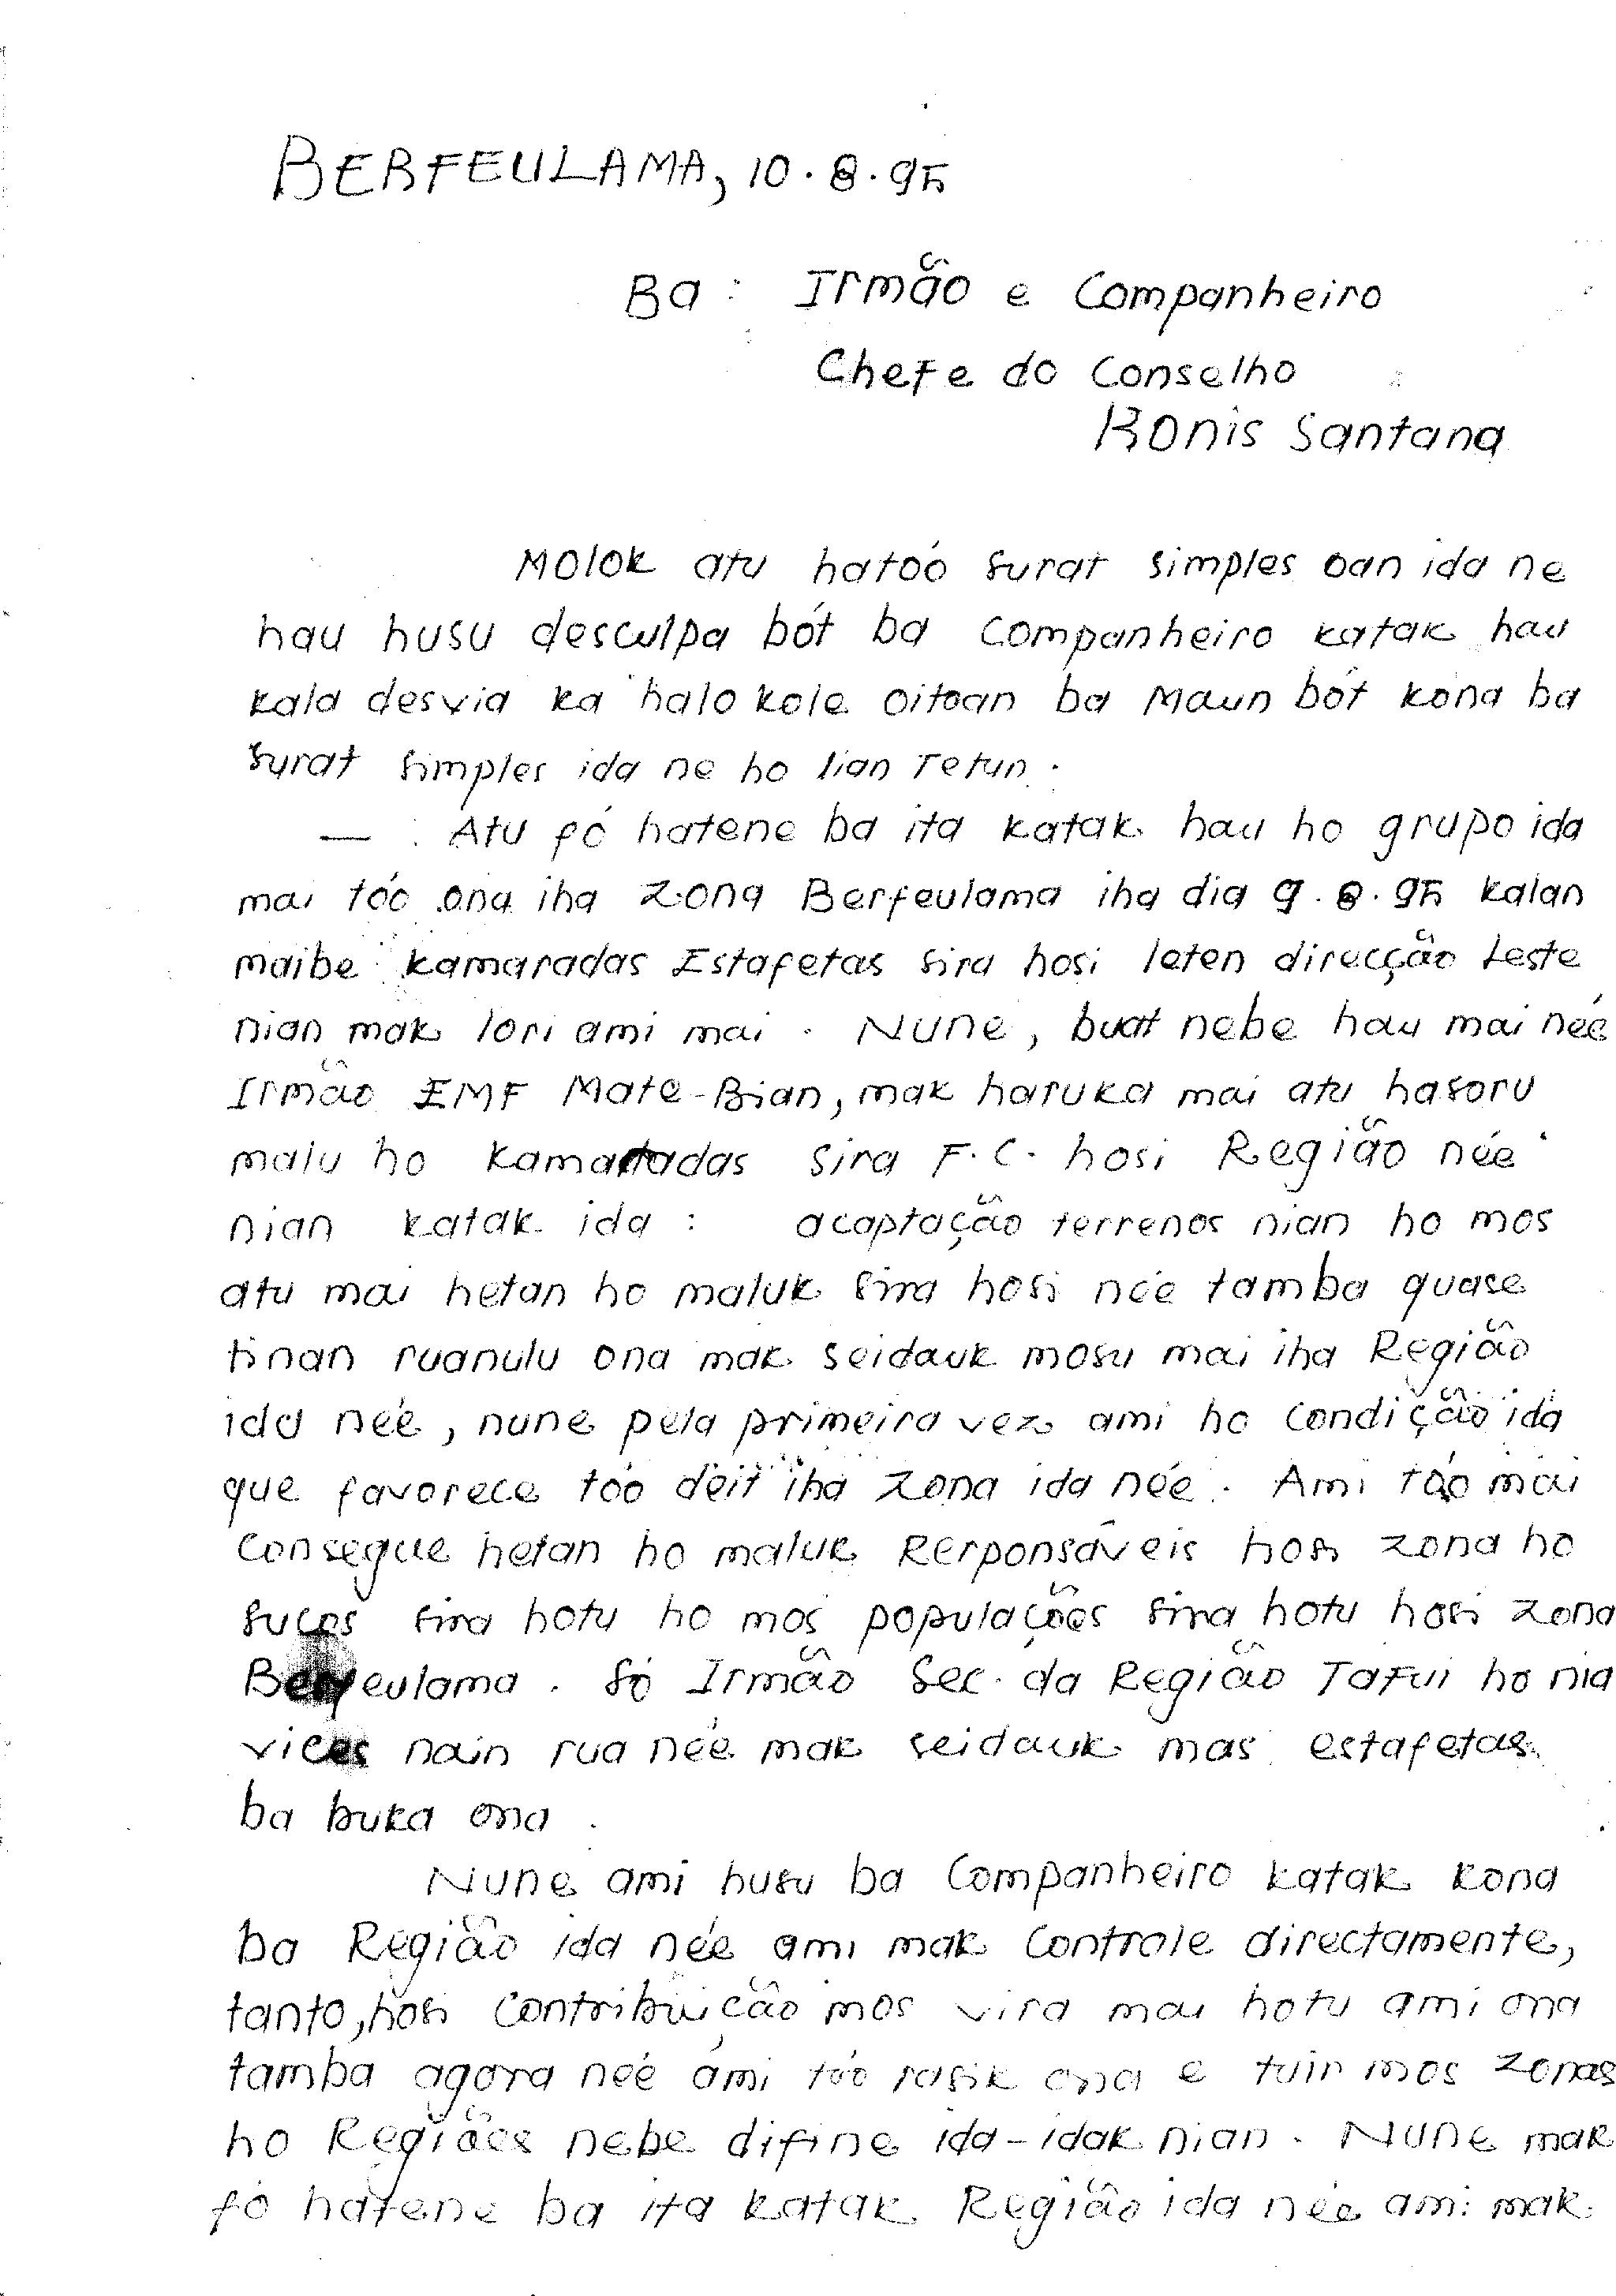 BERFEULAMA, 10.8.95
Ba: Irmão e Companheiro
Chefe do Conselho
Konis Santana
Molok atu hatóo surat simples oan ida ne
hau husu desculpa bót ba Companheiro katak hau
kala desvia ka halo kole oitoan ba Maun bót kona ba
surat simples ida ne ho lian Tetun.
— . Atu fó hatene ba ita katak hau ho grupo ida
mai tóo ona iha zona Berfeulama iha dia 9.8.95 kalan
maibe kamaradas Estafetas sira hosi leten direcção Leste
nian mak lori ami mai. Nune, buat nebe hau mai neé
Irmão EMF Mate-Bian, mak haruka mai atu hasoru
malu ho kamaradas sira F.C. hosi Região née
nian katak ida: acaptação terrenos nian ho mos
atu mai hetan ho maluk sira hosi née tamba quase
tinan ruanulu ona mak seidauk mosu mai iha Região
ida neé, nune pela primeira vez ami ho Condição ida
que favorece tóo deit iha zona ida née. Ami tóo mai
Consegue hetan ho maluk Responsáveis hosi zona ho
sucos sira hotu ho mos populações sira hotu hosi zona
Berfeulama. Só Irmão Sec. da Região Tafui ho nia
vices nain rua neé mak seidauk mas estafetas
ba buka ona.
Nune ami husu ba Companheiro katak kona
ba Região ida neé ami mak Controle directamente,
tanto, hosi Contribuição mos vira mai hotu ami ona
tamba agora neé ami tóo rasik ona e tuir mos zonas
ho Regiões nebe difine ida-idak nian. Nune mak
fó hatene ba ita katak Região ida neé ami mak